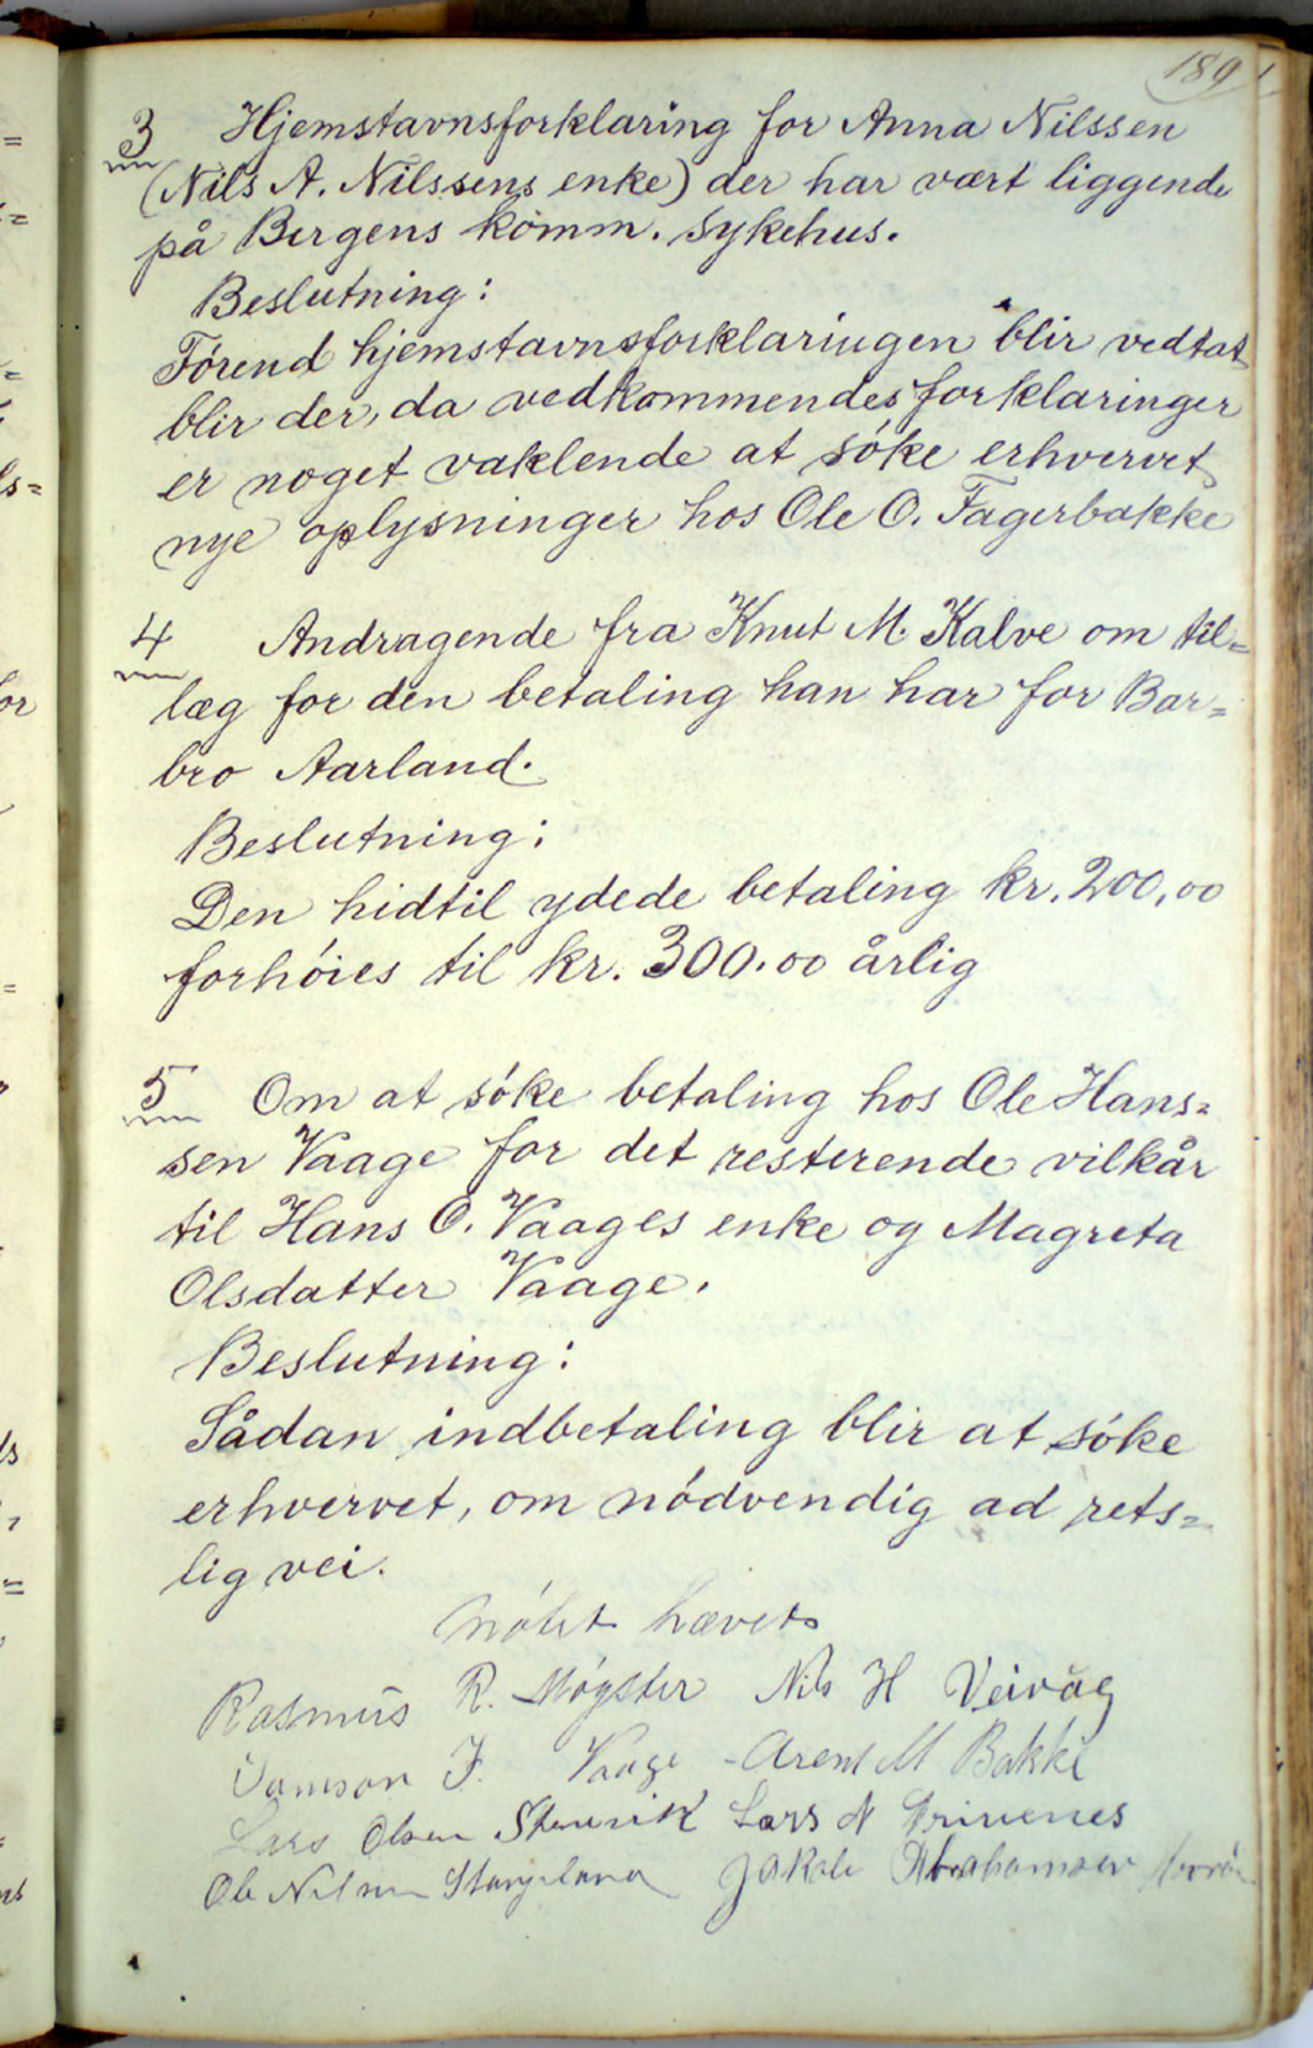 189
3 Hjemstavnsforklaring for Anna Nilssen
(Nils A. Nilssens enke) der har vært liggende
på Bergens komm. sykehus.
Beslutning:
Førend hjemstavnsforklaringen blir vedtat
blir der, da vedkommendes forklaringer
er noget vaklende at söke erhvervet
nye oplysninger hos Ole O. Fagerbakke
4 Andragende fra Knut M. Kalve om til=
læg for den betaling han har for Bar=
bro Aarland.
Beslutning:
Den hidtil ydede betaling kr. 200,00
forhóies til kr. 300.00 årlig
5 Om at sóke betaling hos Ole Hans=
sen Vaage for det resterende vilkår
til Hans O. Vaages enke og Magreta
Olsdatter Vaage.
Beslutning:
Sådan indbetaling blir at sóke
erhvervet, om nódvendig ad rets=
lig vei.
Mótet hævet
Rasmus R. Mógster Nils H Veivåg
Samson J. Vaage Arent M Bakke
Lars Olsen Lars N
Ole Nilsen Stangeland Jakob Abrahamsen